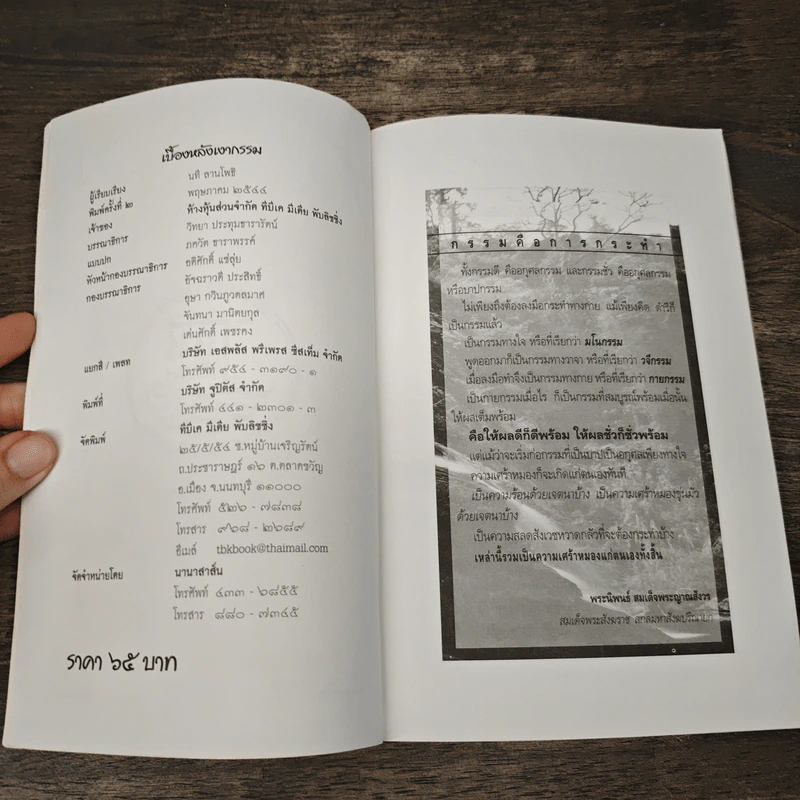 เบื้องหลังเงากรรม
ผู้เรียบเรียง นที ลานโพธิ
พิมพ์ครั้งที่ ๒ พฤษภาคม ๒๕๔๔
เจ้าของ ห้างหุ้นส่วนจำกัด ทีบีเค มีเดีย พับลิชชิ่ง
บรรณาธิการ วิทยา ประทุมธารารัตน์
แบบปก ภควัต ธาราพรรค์
หัวหน้ากองบรรณาธิการ อดิศักดิ์ แซ่ลุ่ย
กองบรรณาธิการ อัจฉราวดี ประสิทธิ์
อุษา กวินภูวดลมาศ
จันทนา มานิตยกุล
เด่นศักดิ์ เพชรคง
แยกสี / เพลท บริษัท เอสพลัส พรีเพรส ซีสเท็ม จำกัด
โทรศัพท์ ๙๕๔ - ๓๑๙๐ - ๑
พิมพ์ที่ บริษัท จูปิตัส จำกัด
โทรศัพท์ ๔๔๑ - ๒๓๐๑ - ๓
จัดพิมพ์ ทีบีเค มีเดีย พับลิชชิ่ง
๒๕/๕/๕๔ ซ.หมู่บ้านเจริญรัตน์
ถ.ประชาราษฎร์ ๑๖ ต.ตลาดขวัญ
อ.เมือง จ.นนทบุรี ๑๑๐๐๐
โทรศัพท์ ๕๒๖ - ๗๘๓๘
โทรสาร ๙๖๘ - ๒๖๘๙
อีเมล์ tbkbook@thaimail.com
จัดจำหน่ายโดย นานาสาส์น
โทรศัพท์ ๔๓๓ - ๖๘๕๕
โทรสาร ๘๘๐ - ๗๓๔๕
ราคา ๖๕ บาท
กรรมคือการกระทำ
ทั้งกรรมดี คือกุศลกรรม และกรรมชั่ว คืออกุศลกรรม
หรือบาปกรรม
ไม่เพียงถึงต้องลงมือกระทำทางกาย แม้เพียงคิด ดำริก็
เป็นกรรมแล้ว
เป็นกรรมทางใจ หรือที่เรียกว่า มโนกรรม
พูดออกมาก็เป็นกรรมทางวาจา หรือที่เรียกว่า วจีกรรม
เมื่อลงมือทำจึงเป็นกรรมทางกาย หรือที่เรียกว่า กายกรรม
เป็นกายกรรมเมื่อไร ก็เป็นกรรมที่สมบูรณ์พร้อมเมื่อนั้น
ให้ผลเต็มพร้อม
คือให้ผลดีก็ดีพร้อม ให้ผลชั่วก็ชั่วพร้อม
แต่แม้ว่าจะเริ่มก่อกรรมที่เป็นบาปเป็นอกุศลเพียงทางใจ
ความเศร้าหมองก็จะเกิดแก่ตนเองทันที
เป็นความร้อนด้วยเจตนาบ้าง เป็นความเศร้าหมองขุ่นมัว
ด้วยเจตนาบ้าง
เป็นความสลดสังเวชหวาดกลัวที่จะต้องกระทำบ้าง
เหล่านี้รวมเป็นความเศร้าหมองแก่ตนเองทั้งสิ้น
พระนิพนธ์ สมเด็จพระญาณสังวร
สมเด็จพระสังฆราช สกลมหาสังฆปริณายก